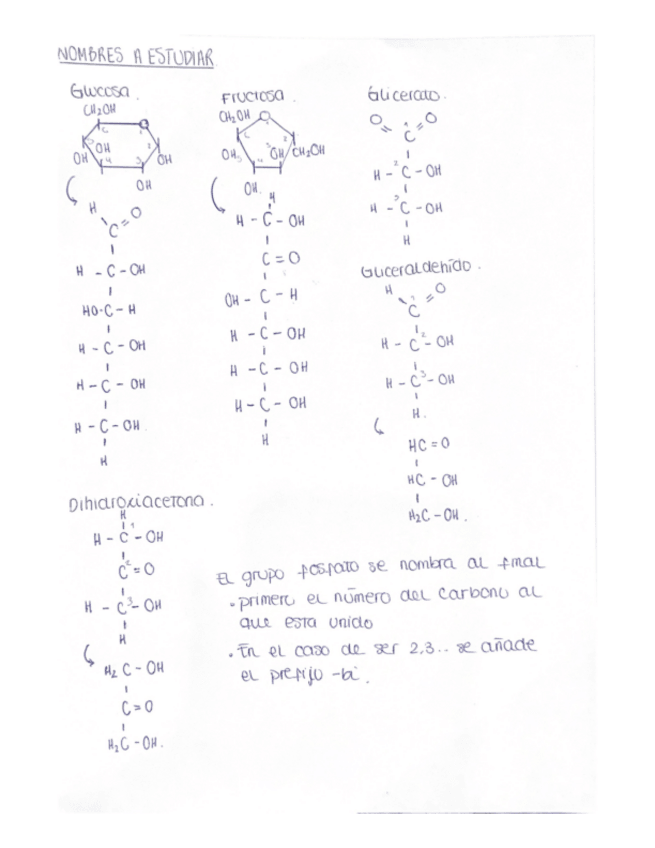 NOMBRES A ESTUDIAR
Glucosa.
CH₂OH
O
C
OH
OH
4
3
2
OH
OH
H
O
C
H - C - OH
HO - C - H
H - C - OH
H - C - OH
H - C - OH
H
Fructosa.
CH₂OH
O
C
2
OH
4
3
OH
CH₂OH
OH
H
H - C - OH
C = O
OH - C - H
H - C - OH
H - C - OH
H - C - OH
H
Glicerato.
O
O
C¹
H - C² - OH
H - C³ - OH
H
Gliceraldehído.
H
O
C¹
H - C² - OH
H - C³ - OH
H.
HC = O
HC - OH
H₂C - OH.
Dihidroxiacetona.
H
H - C¹ - OH
C² = O
H - C³ - OH
H
H₂C - OH
C = O
H₂C - OH.
El grupo fosfato se nombra al final
• primero el número del carbono al
que esta unido
• En el caso de ser 2,3.. se añade
el prefijo -bi.